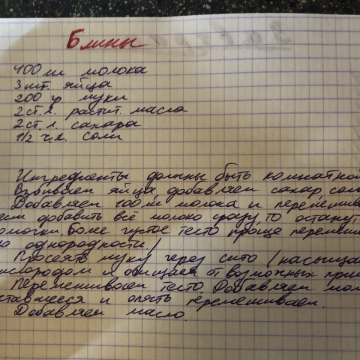 Блины
400 мл молока
3 шт. яйца
200 гр муки
2 ст.л. растит. масла
2 ст.л. сахара
1/2 ч.л. соли
Ингредиенты должны быть комнатной
Взбиваем яйца, добавляем сахар, сол
Добавляем 100 мл молока и перемешива
добавить всё молоко сразу, то останут
комочки, более густое тесто проще перемеш
до однородности/
Просеять муку через сито /насыщае
кислородом и очищает от возможных прим
Перемешиваем тесто. Добавляем мол
оставшееся и опять перемешиваем.
Добавляем масло.